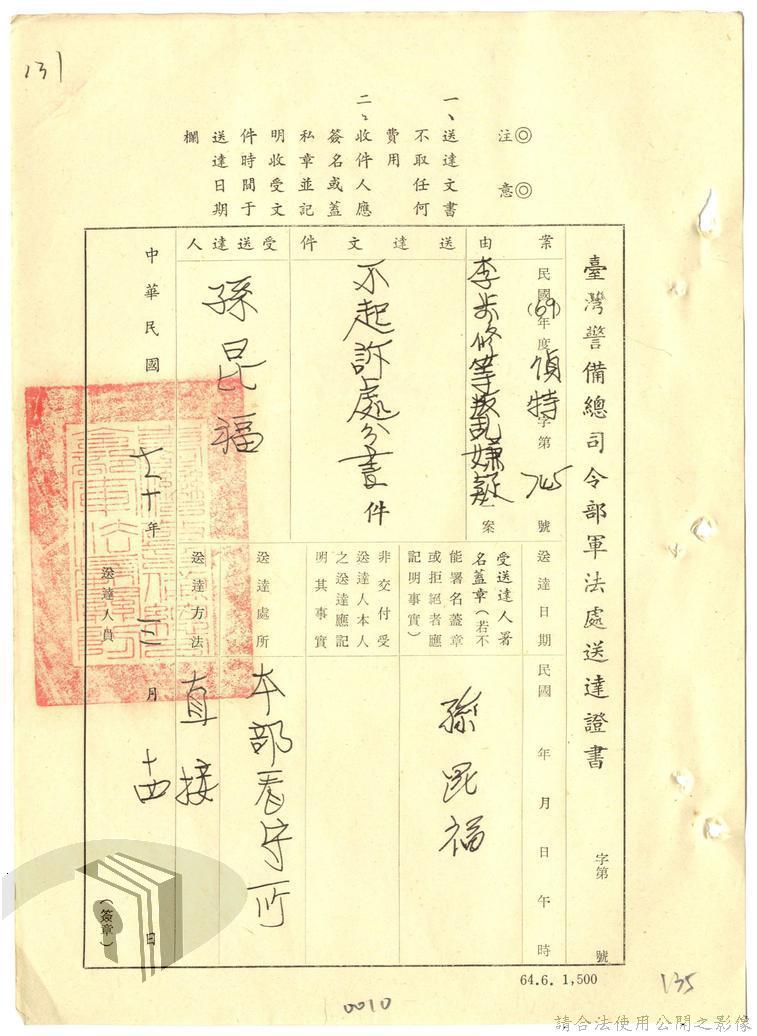 131
◎注意◎
一、送達文書
不取任何
費用
二、收件人應
簽名或蓋
私章並記
明收受文
件時間于
送達日期
欄
臺灣警備總司令部軍法處送達證書
字第 號
案由
民國(69)年度偵特字第 號
李步修等叛亂嫌疑案
送達文件
不起訴處分書 件
受送達人
孫昆福
送達日期
民國 年 月 日 午 時
受送達人署
名蓋章(若不
能署名蓋章
或拒絕者應
記明事實)
孫昆福
非交付受
送達人本人
之送達應記
明其事實
送達處所
本部看守所
送達方法
直接
中華民國七十年 三 月 日
送達人員
(簽章)
64.6. 1,500
135
0010
請合法使用公開之影像